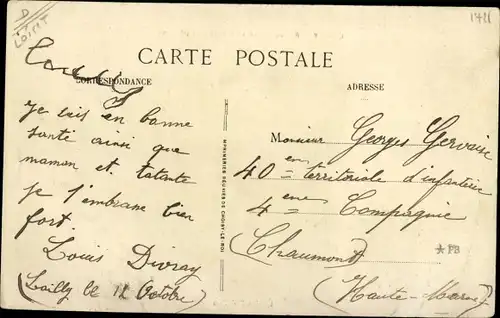 D
LOIRET
CARTE POSTALE
CORRESPONDANCE
ADRESSE
Je suis en bonne
santé ainsi que
maman et tatante
je t'embrasse bien
fort.
Louis Divray
(Lailly le 12 Octobre)
IMPRIMERIES RÉUNIES DE CHOISY-LE-ROI
Monsieur Georges Gervaise
40 em territoriale d'infanterie
4 eme Compagnie
(Chaumont)
(Haute-Marne)
*PB